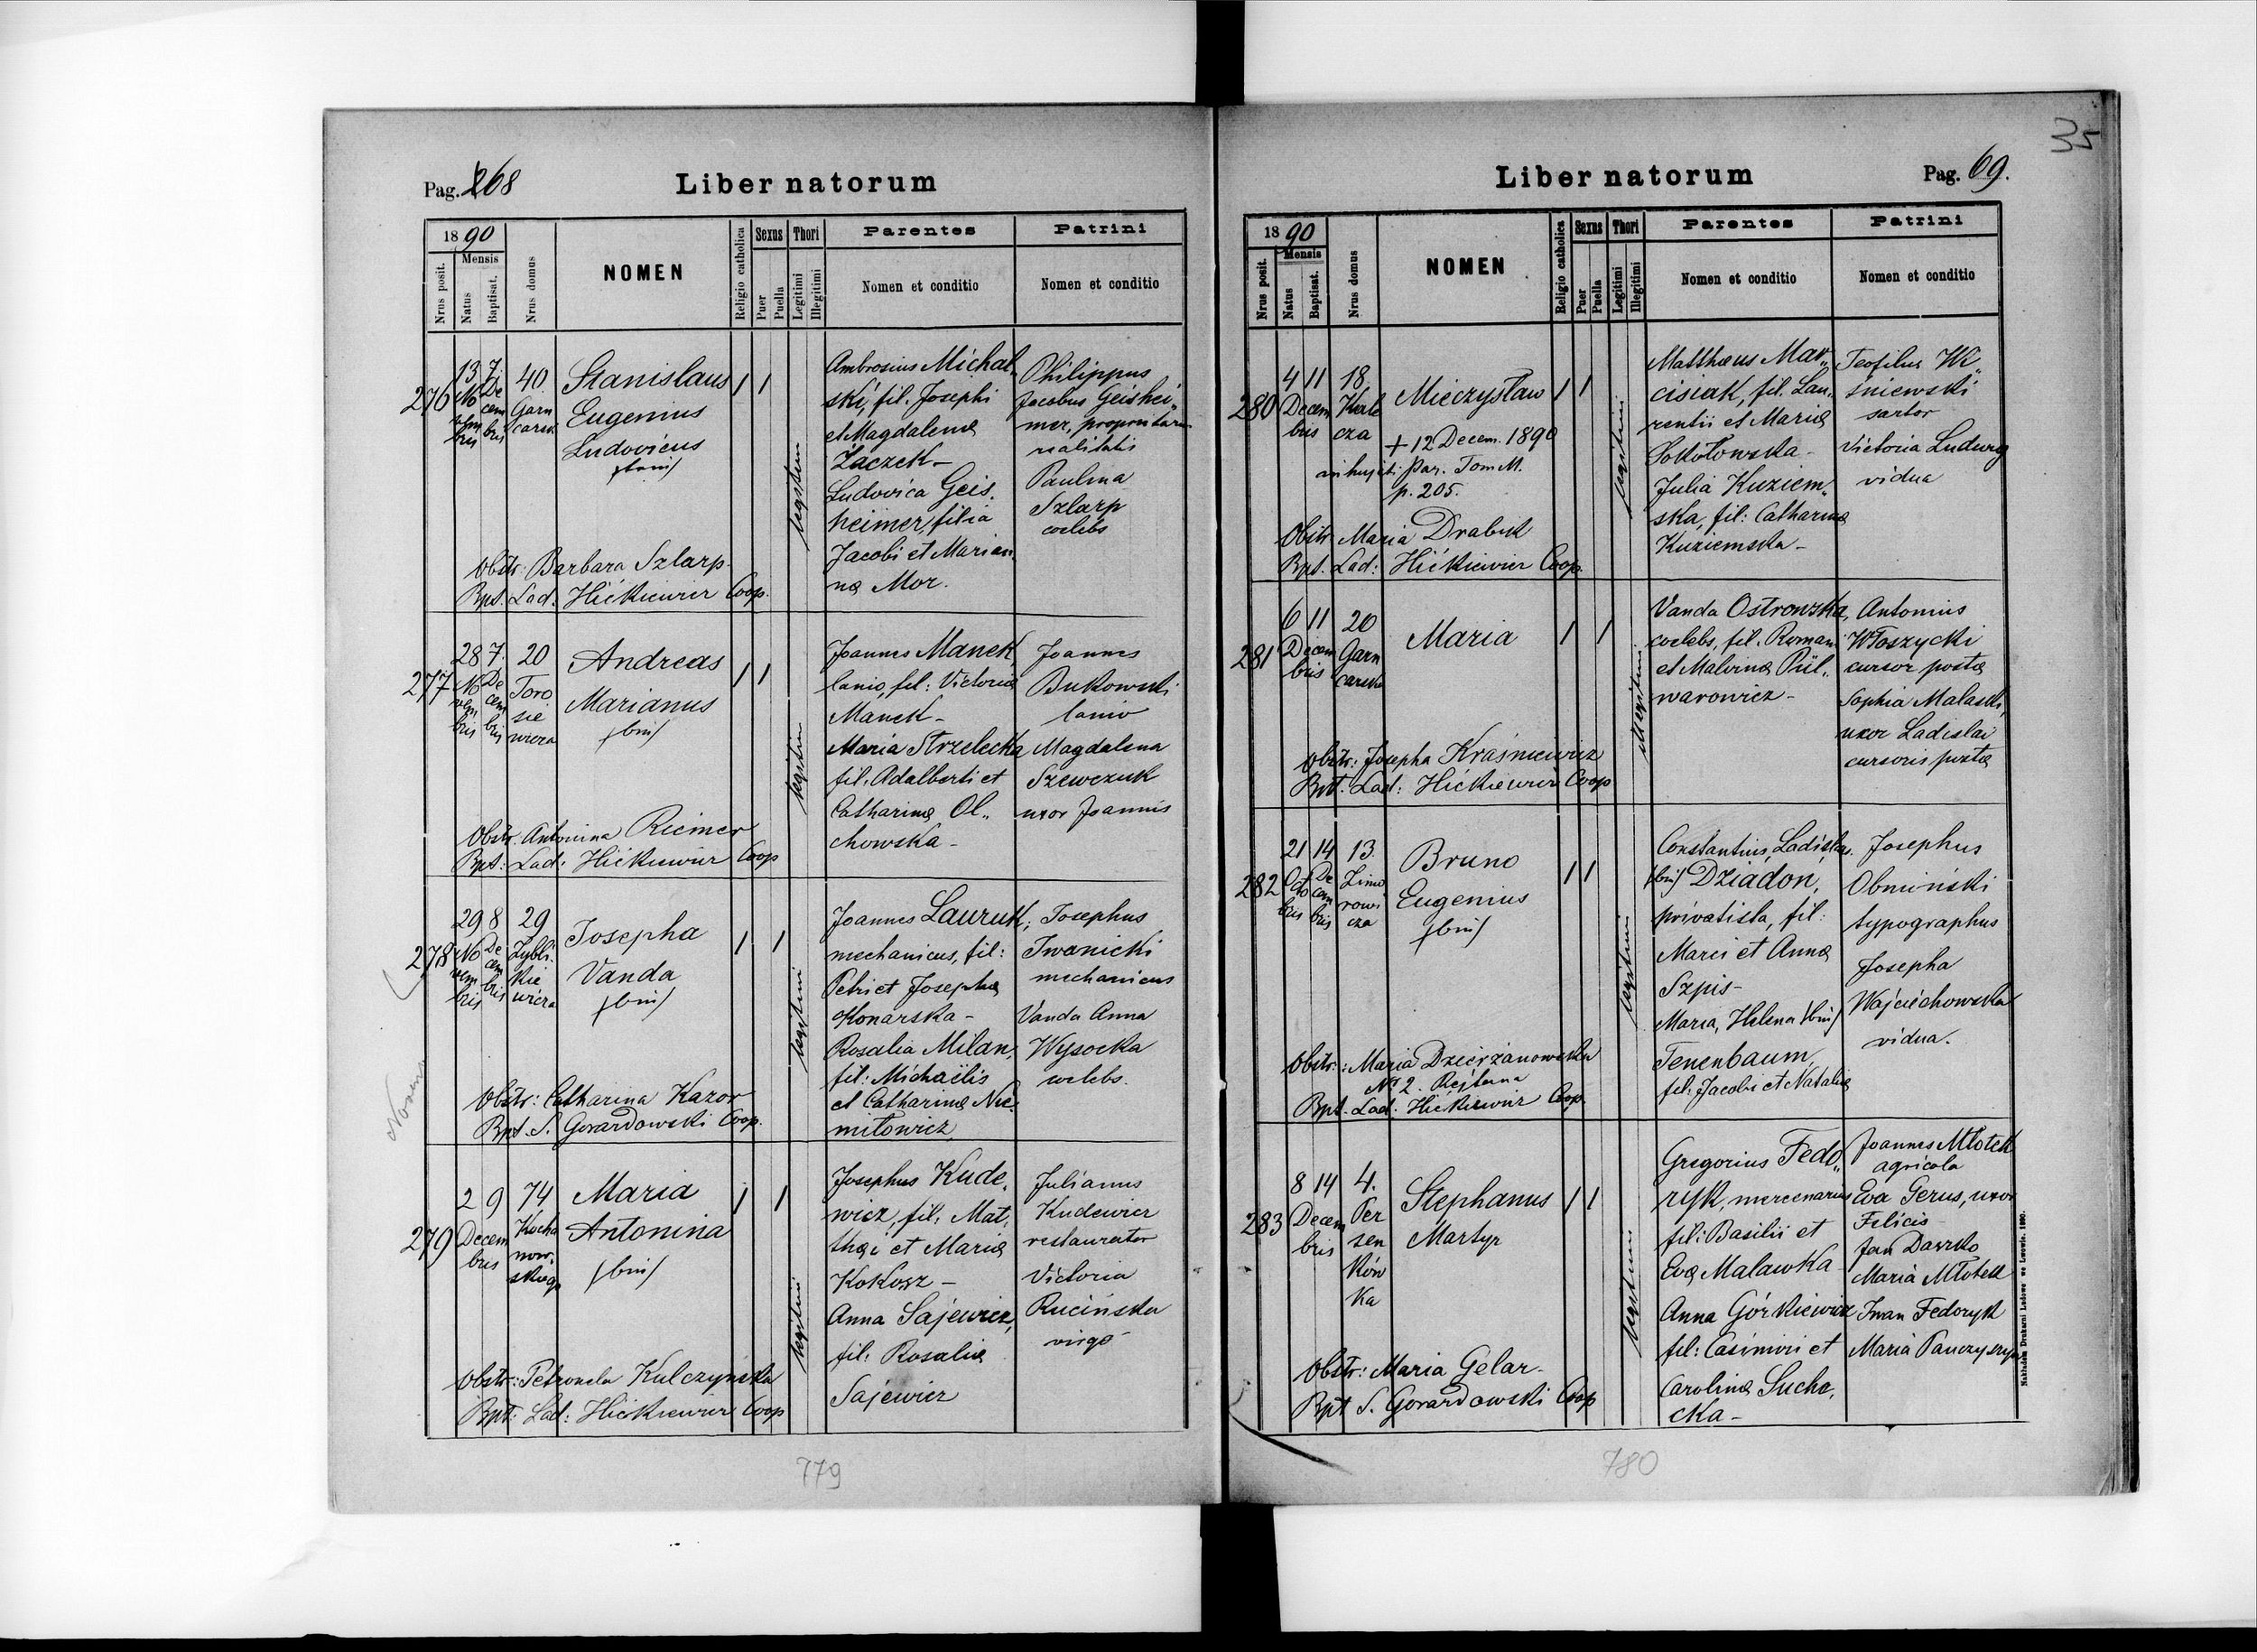 Pag. 68
Liber natorum
1890
Mensis
Nrus posit.
Natus
Baptisat.
Nrus domus
NOMEN
Religio catholica
Sexus
Puer
Puella
Thori
Legitimi
Illegitimi
Parentes
Nomen et conditio
Patrini
Nomen et conditio
276
13
No
vem
bris
7.
De
cem
bris
40
Garn
carsk
Stanislaus
Eugenius
Ludovicus
(trin)
legitimi
Ambrosius Michal„
ski, fil. Josephi
et Magdalenæ
Żaczek –
Ludovica Geis„
heimer, filia
Jacobi et Marian„
næ Mor.
Philippus
Jacobus Geishei„
mer, proprietarius
realitatis
Paulina
Szlarp
coelebs
Obstr: Barbara Szlarp.
Bpt. Lad. Hićkiewicz Coop.
277
28
No
vem
bris
7.
De
cem
bris
20
Toro
sie
wicza
Andreas
Marianus
(bin)
legitimi
Joannes Manek,
lanio, fil: Victoriæ
Manek –
Maria Strzelecka
fil. Adalberti et
Catharinæ Ol„
chowska –
Joannes
Bukowski
lanio
Magdalena
Szewczuk
uxor Joannis
Obstr. Antonina Riemer
Bpt: Lad: Hićkiewicz Coop
278
29
No
vem
bris
8
De
cem
bris
29
Zybli
kie
wicza
Josepha
Vanda
(bin)
legitimi
Joannes Lauruk,
mechanicus, fil:
Petri et Josephæ
Konarska –
Rosalia Milan,
fil: Michaëlis
et Catharinæ Nie„
miłowicz
Josephus
Iwanicki
mechanicus
Vanda Anna
Wysocka
coelebs.
Obstr: Catharina Kazor
Bpt. S. Gorardowski Coop.
279
2
9
Decem
bris
74
Kocha
now
skiego
Maria
Antonina
(bin)
legitimi
Josephus Kude„
wicz, fil. Mat„
thæi et Mariæ
Kokosz –
Anna Sajewicz,
fil: Rosaliæ
Sajewicz
Julianus
Kudewicz
restaurator
Victoria
Rucińska
virgo
Obstr: Petronela Kulczyńska
Bpt: Lad: Hićkiewicz Coop
779
35
Liber natorum
Pag. 69.
1890
Mensis
Nrus posit.
Natus
Baptisat.
Nrus domus
NOMEN
Religio catholica
Sexus
Puer
Puella
Thori
Legitimi
Illegitimi
Parentes
Nomen et conditio
Patrini
Nomen et conditio
280
4
11
Decem
bris
18
Kale
cza
Mieczysław
+ 12 Decem. 1890
par. Tom M.
p. 205.
legitimi
Matthæus Mar„
cisiak, fil. Lau„
rentii et Mariæ
Sokołowska –
Julia Kuziem„
ska, fil: Catharinæ
Kuziemska –
Teofilus Wi„
śniewski
sartor
Victoria Ludwig
vidua
Obstr Maria Drabik
Bpt. Lad: Hićkiewicz Coop.
281
6
11
Decem
bris
20
Garn
carska
Maria
illegitimi
Vanda Ostrowska,
coelebs, fil. Romani
et Malvinæ Pül„
warowicz –
Antonius
Włoszycki
cursor postæ
Sophia Malaski,
uxor Ladislai
cursoris postæ
Obstr: Josepha Kraśniewicz
Bpt. Lad: Hićkiewicz Coop
282
21
Octo
bris
14
De
cem
bris
13.
Zimo
rowi
cza
Bruno
Eugenius
(bin)
legitimi
Constantius, Ladislaus
(bin) Dziadoń,
privatista, fil:
Marci et Annæ
Szpis –
Maria, Helena (bin)
Tenenbaum,
fil: Jacobi et Nataliæ
Josephus
Obmiński
typographus
Josepha
Wojciechowska
vidua.
Obstr.: Maria Dzierżanowska
No 2. Rejtana
Bpt. Lad: Hićkiewicz Coop
283
8
14
Decem
bris
4.
Per
sen
ków
ka
Stephanus
Martyr
legitimi
Gregorius Fedo„
ryk, mercenarius
fil: Basilii et
Evæ Malawka
Anna Górkiewicz
fil: Casimiri et
Carolinæ Sucho„
cka –
Joannes Młotek
agricola
Eva Gerus, uxor
Felicis
Jan Daszko
Maria Młotek
Iwan Fedoryk
Maria Panczyszyn
Obstr: Maria Gelar –
Bpt S. Gorardowski Coop
Nakładem Drukarni Ludowej we Lwowie. 1890.
780